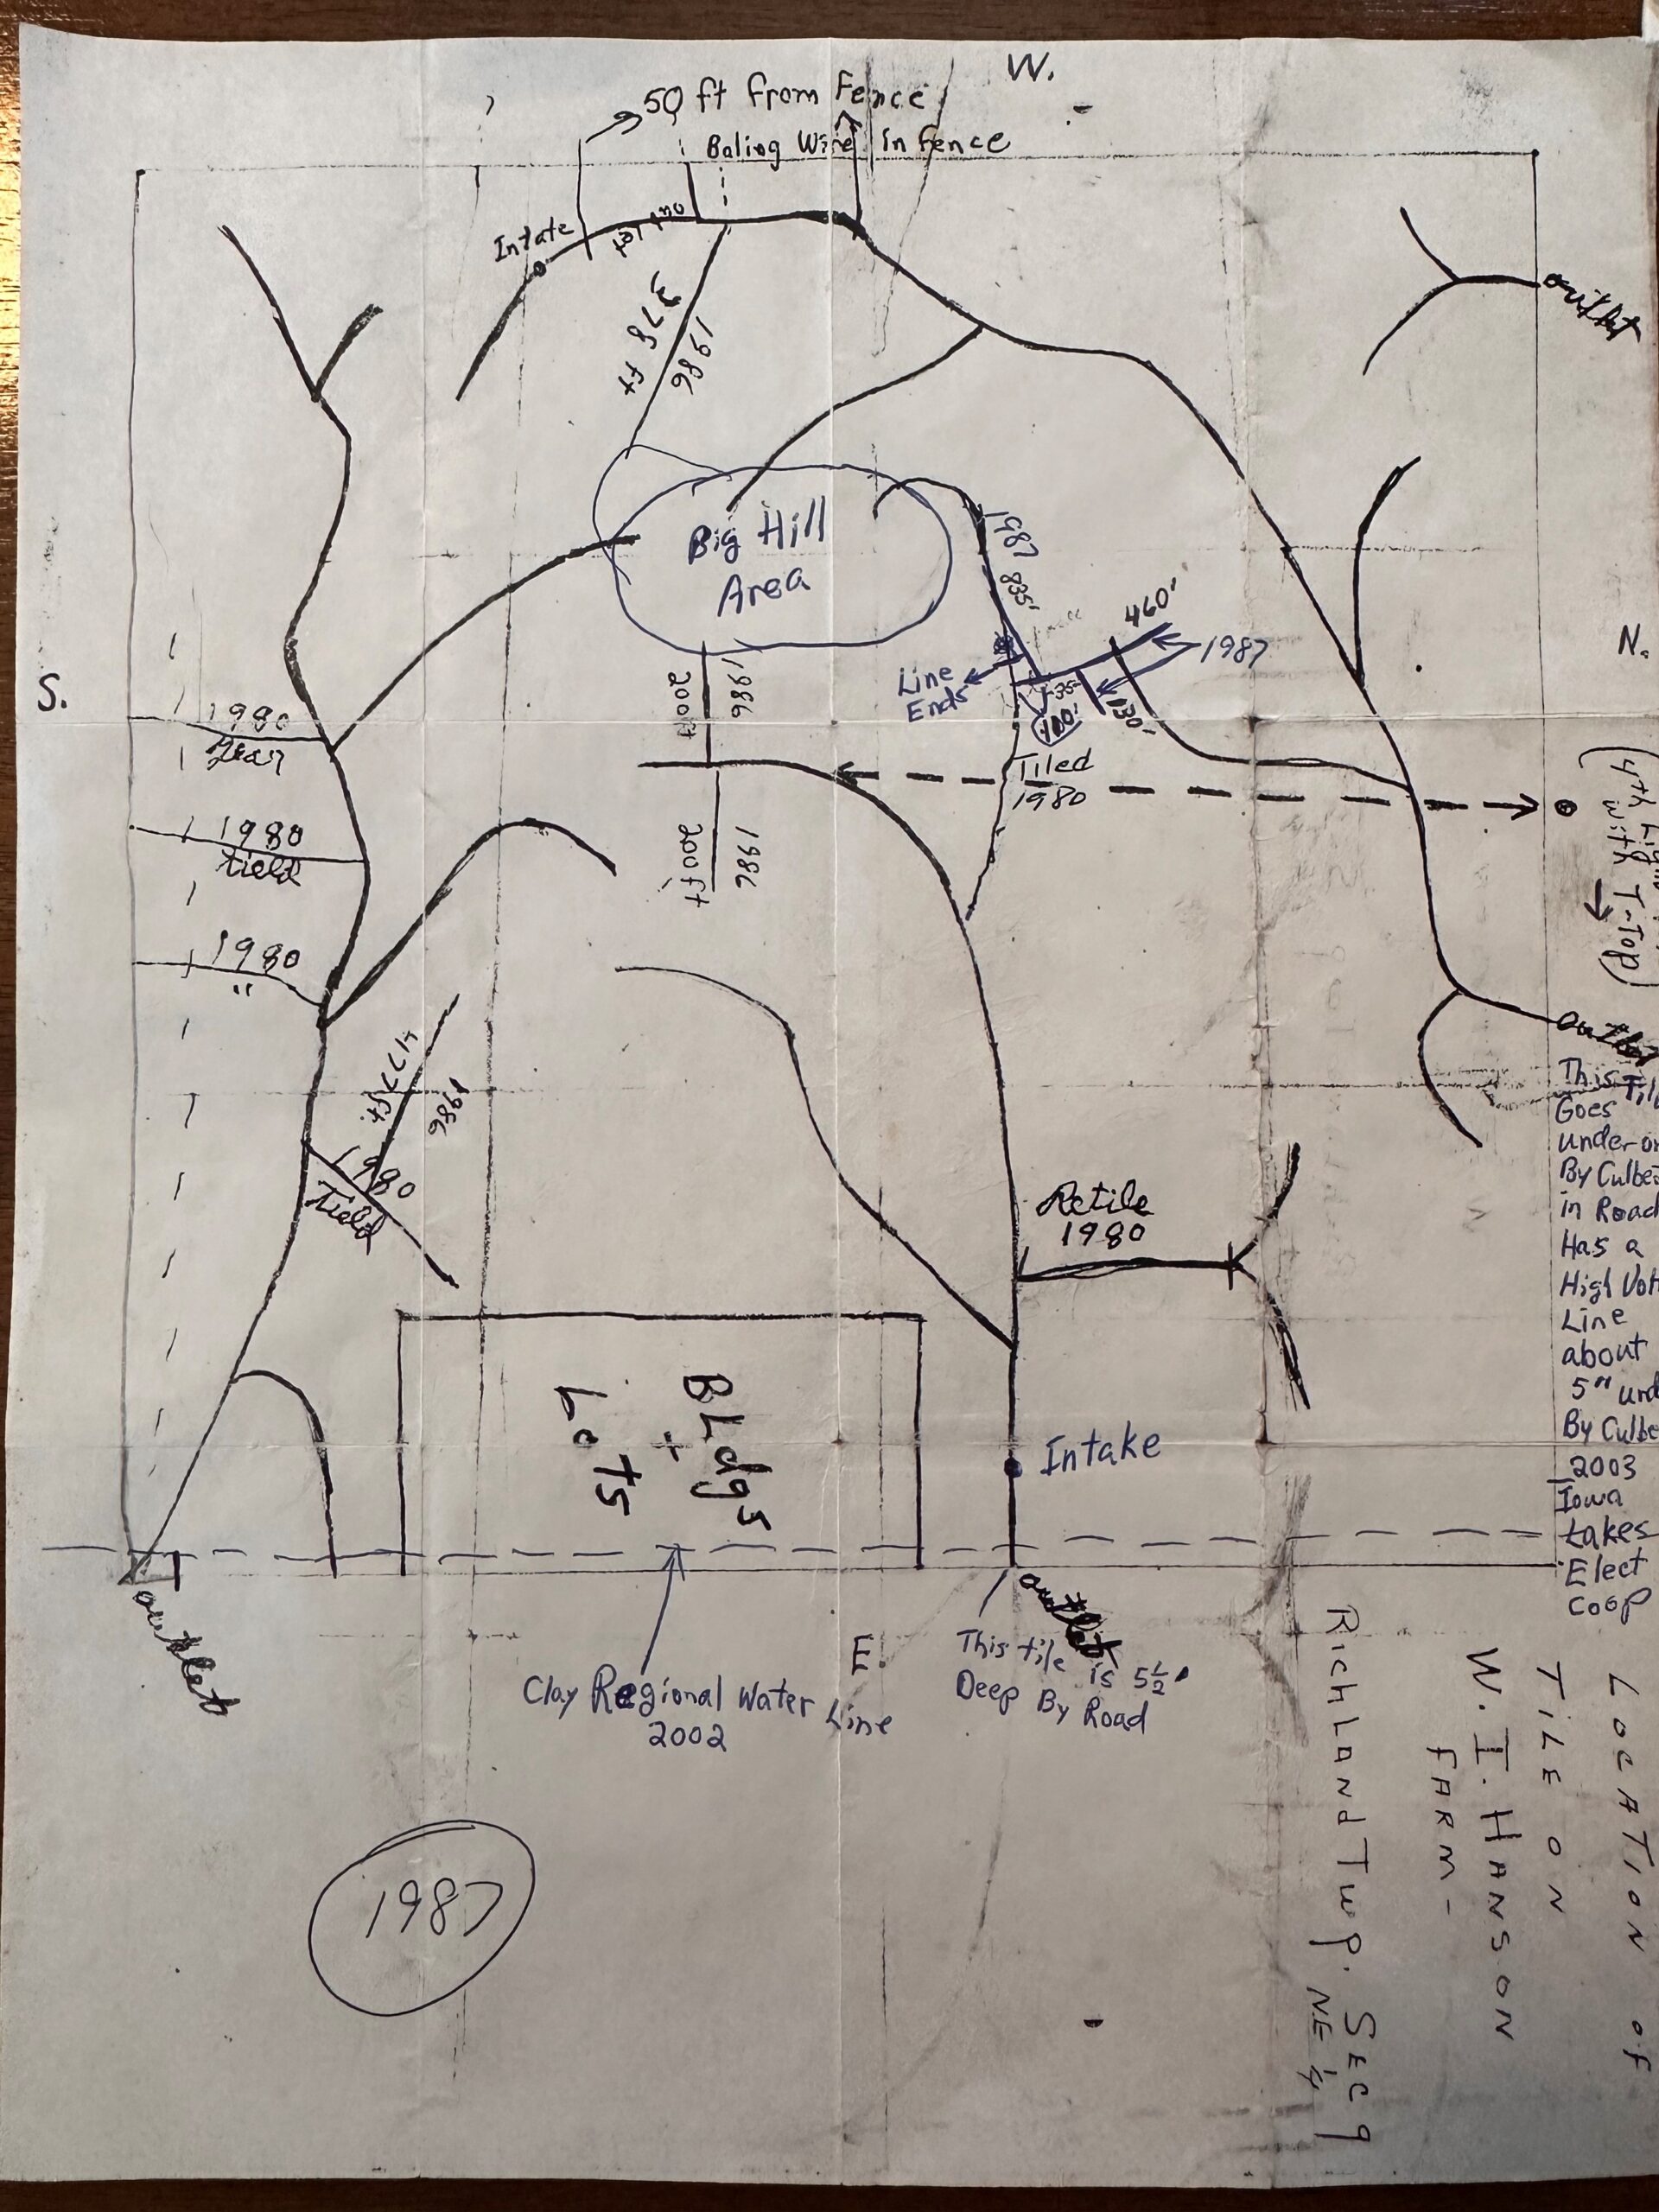 W.
50 ft from Fence
Baling Wire in fence
Intate
101 ft
out
378 ft
1986
outlet
Big Hill
Area
1987
835'
460'
1987
Line
Ends
35'
100'
130'
N.
S.
1980
1980
tield
1980
"
200 ft
1986
200 ft
1986
Tiled
1980
(4th
with T-Top)
outlet
This Tile
Goes
under
By
in Road
Has a
High
Line
about
5"
By
2003
Iowa
Lakes
Elect
Coop
477 ft
1986
1980
Tield
Retile
1980
Bldgs
+
Lots
Intake
outlet
outlet
E.
This tile is 5½'
Deep By Road
Clay Regional Water Line
2002
1987
LOCATION OF
TILE ON
W. I. HANSON
FARM-
RICHLAND Twp. SEC 9
NE ¼